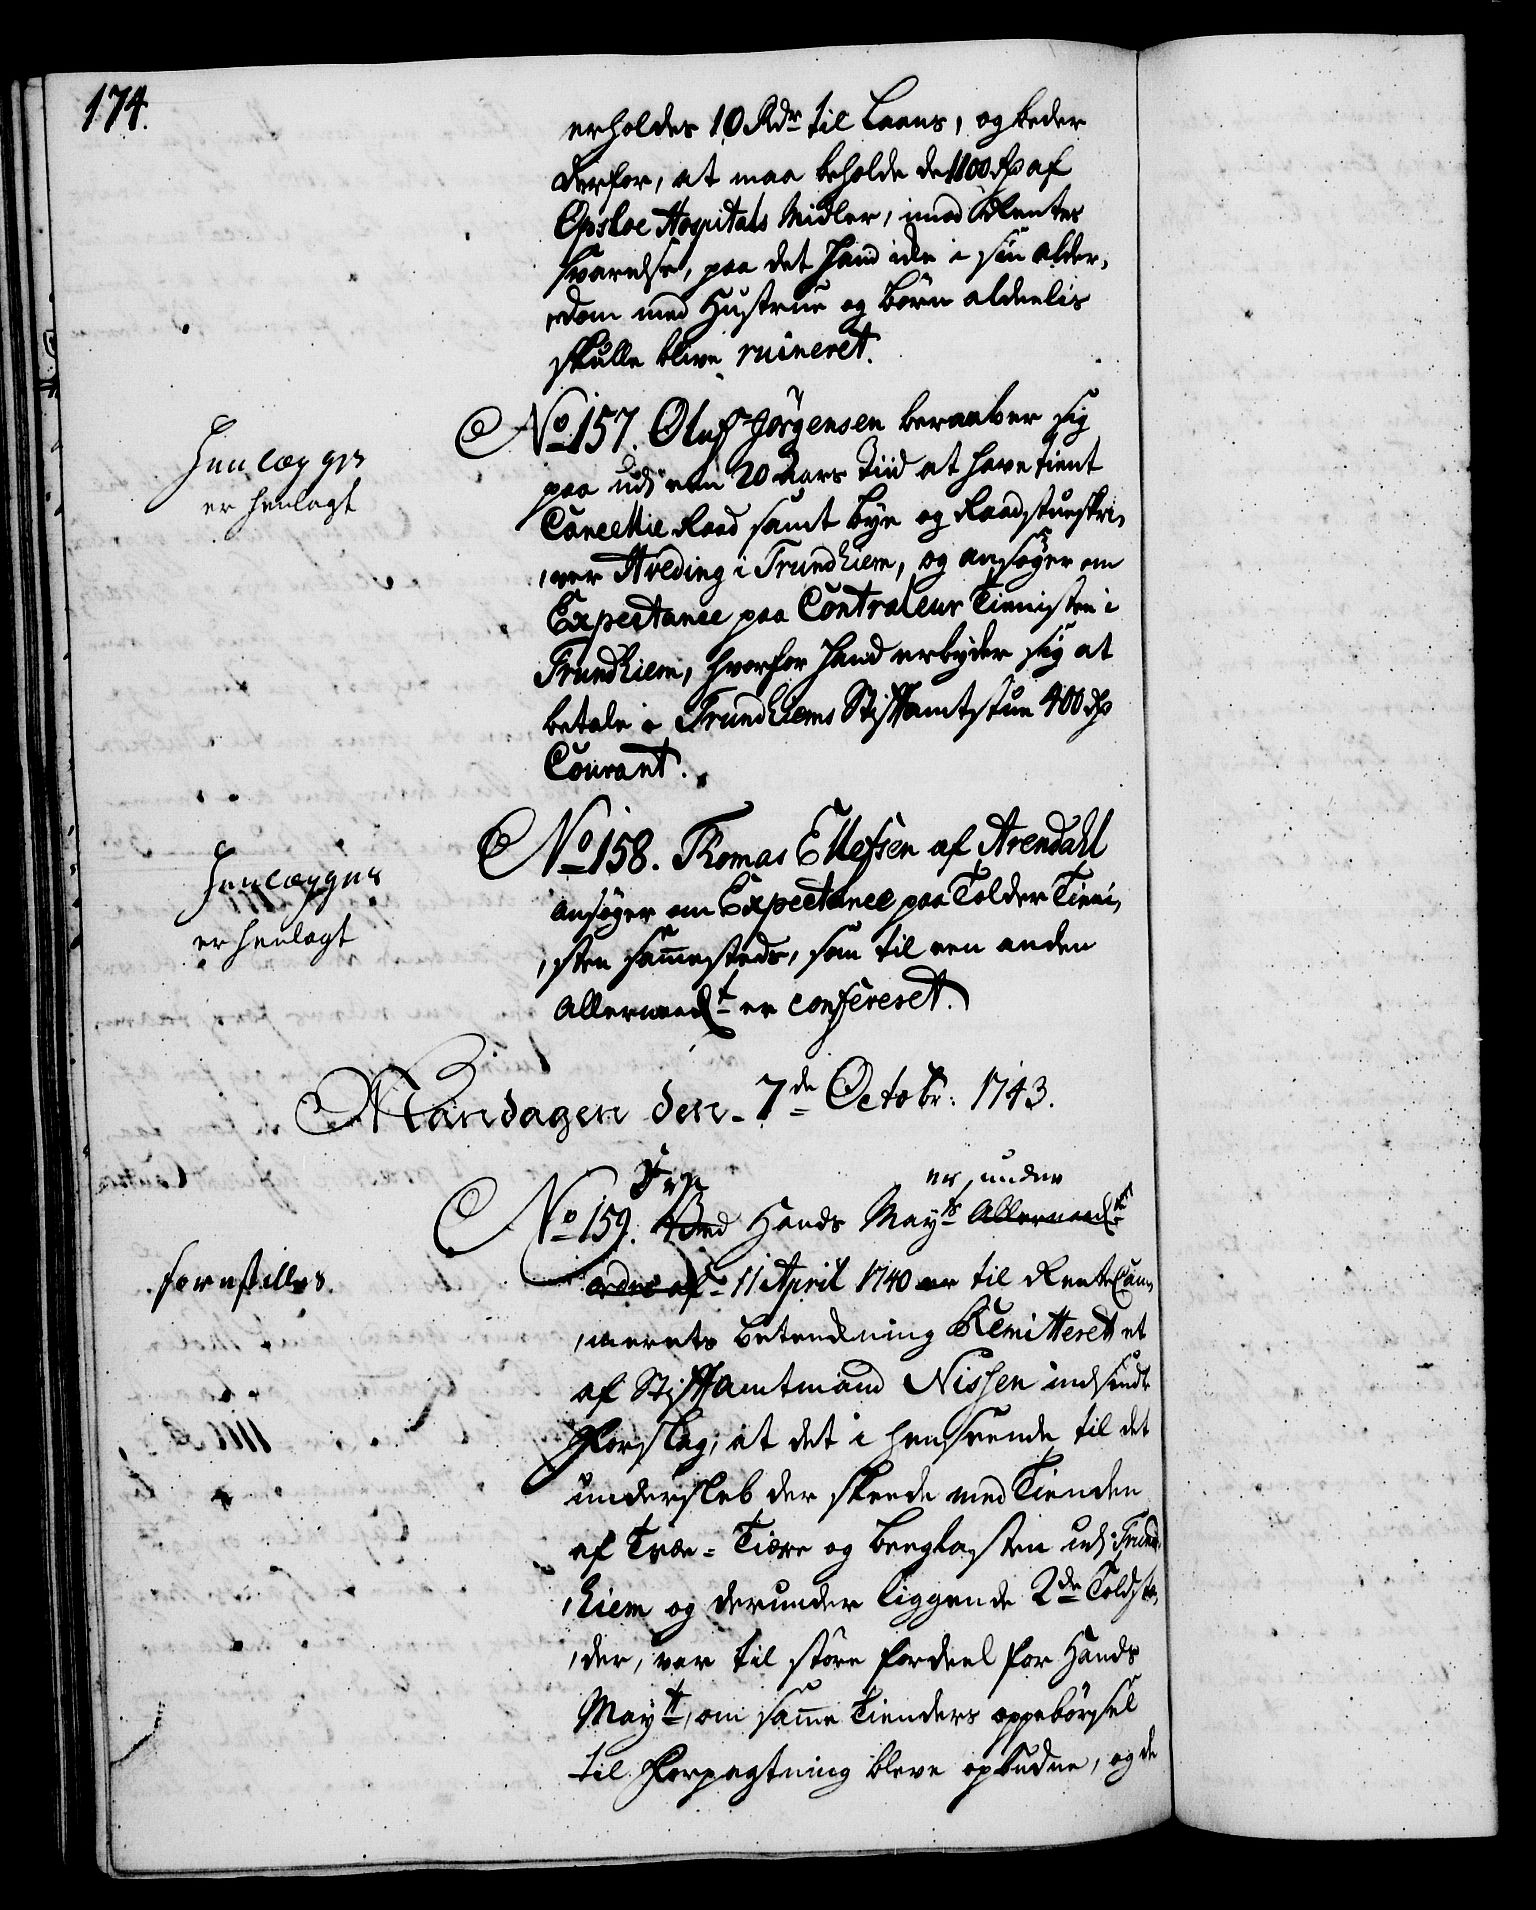 174.
erholder 10 Rdr til Laans, og beder
derfor, at maa beholde de 1100 rd af
Opsloe Hospitals Midler, imod Rentes
Svarelse, paa det hand icke i sin alder,
,dom med Hustrue og Børn aldeelis
skulle blive ruineret.
Henlægges
er henlagt
No 157. Oluf Jørgensen beraaber sig
paa udi een 20 Aars Tiid at have tient
Cancellie Raad samt bye og Raadstueskri,
,ver Hveding i Trundhiem, og ansøger om
Expectance paa Contraleur Tienisten i
Trundhiem, hvorfor hand erbyder sig at
betale i Trundhiems Stiftamtstue 400 rd
Courant.
Henlægges
er henlagt
No 158. Thomas Ellefsen af Arendahl
ansøger om Expectance paa Tolder Tieni,
,sten sammesteds, som til een anden
allernaadst er confereret.
Mandagen den 7de Octobr: 1743.
Forestilles.
er under
No 159. Ved Hands Mayts Allernaadste
ordre af 11 April 1740 er til RenteCam,
,merets betenckning Remitteret et
af Stiftamtmand Nissen indsendt
Forslag, at det i henseende til det
undersleb der skeede med Tienden
af Træe-Tiære og Beeglasten udi Trund,
,hiem og derunder liggende 2de Toldste,
,der, var til støre fordeel for Hands
Maytt, om samme Tienders oppebørsel
til Forpagtning bleve opbudne, og de